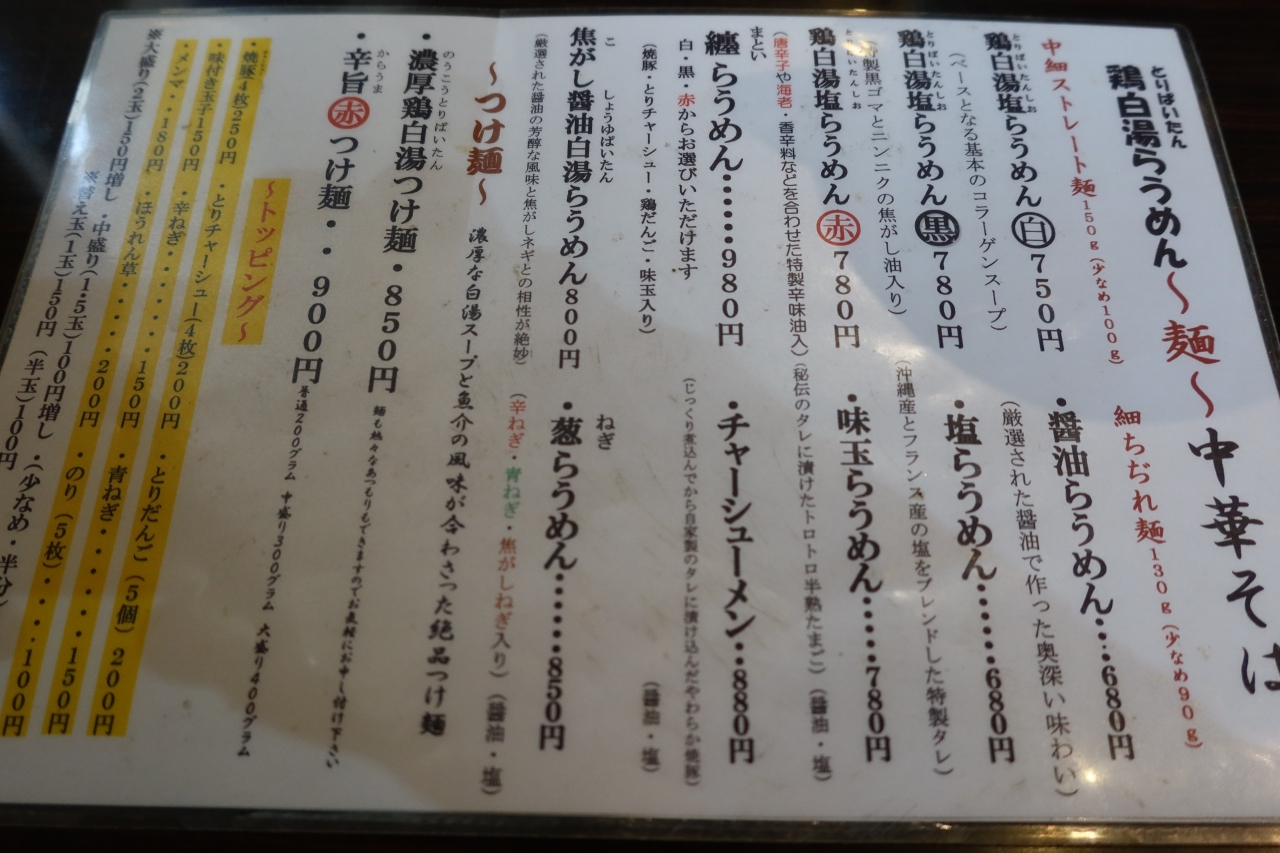 鶏白湯らうめん～麺～中華そば
とりぱいたん
中細ストレート麺150g(少なめ100g)
細ちぢれ麺130g(少なめ90g)
とりぱいたんしお
鶏白湯塩らうめん白750円
(ベースとなる基本のコラーゲンスープ)
とりぱいたんしお
鶏白湯塩らうめん黒780円
製黒ゴマとニンニクの焦がし油入り)
とりぱいたんしお
鶏白湯塩らうめん赤780円
(唐辛子や海老・香辛料などを合わせた特製辛味油入)
まとい
纏らうめん‥‥‥980円
白・黒・赤からお選びいただけます
(焼豚・とりチャーシュー・鶏だんご・味玉入り)
こ しょうゆぱいたん
焦がし醤油白湯らうめん800円
(厳選された醤油の芳醇な風味と焦がしネギとの相性が絶妙)
・醤油らうめん‥‥680円
(厳選された醤油で作った奥深い味わい)
・塩らうめん‥‥‥680円
(沖縄産とフランス産の塩をブレンドした特製タレ)
・味玉らうめん‥‥‥780円
(秘伝のタレに漬けたトロトロ半熟たまご)(醤油・塩)
・チャーシューメン‥880円
(じっくり煮込んでから自家製のタレに漬け込んだやわらか焼豚)
(醤油・塩)
ねぎ
・葱らうめん‥‥‥850円
(辛ねぎ・青ねぎ・焦がしねぎ入り)(醤油・塩)
～つけ麺～
濃厚な白湯スープと魚介の風味が合わさった絶品つけ麺
のうこうとりぱいたん
・濃厚鶏白湯つけ麺・850円
麺も熱々なあつもりもできますのでお気軽にお申し付け下さい
からうま
・辛旨赤つけ麺・・900円
普通200グラム 中盛り300グラム 大盛り400グラム
～トッピング～
・焼豚4枚250円 ・とりチャーシュー(4枚)200円 ・とりだんご(5個)200円
・味付き玉子150円 ・辛ねぎ・・・・・150円 ・青ねぎ・・・・・150円
・メンマ・・180円 ・ほうれん草・・・・200円 ・のり(5枚)・・・・100円
※大盛り(2玉)150円増し ・中盛り(1.5玉)100円増し ・(少なめ・半分)
※替え玉(1玉)150円 (半玉)100円